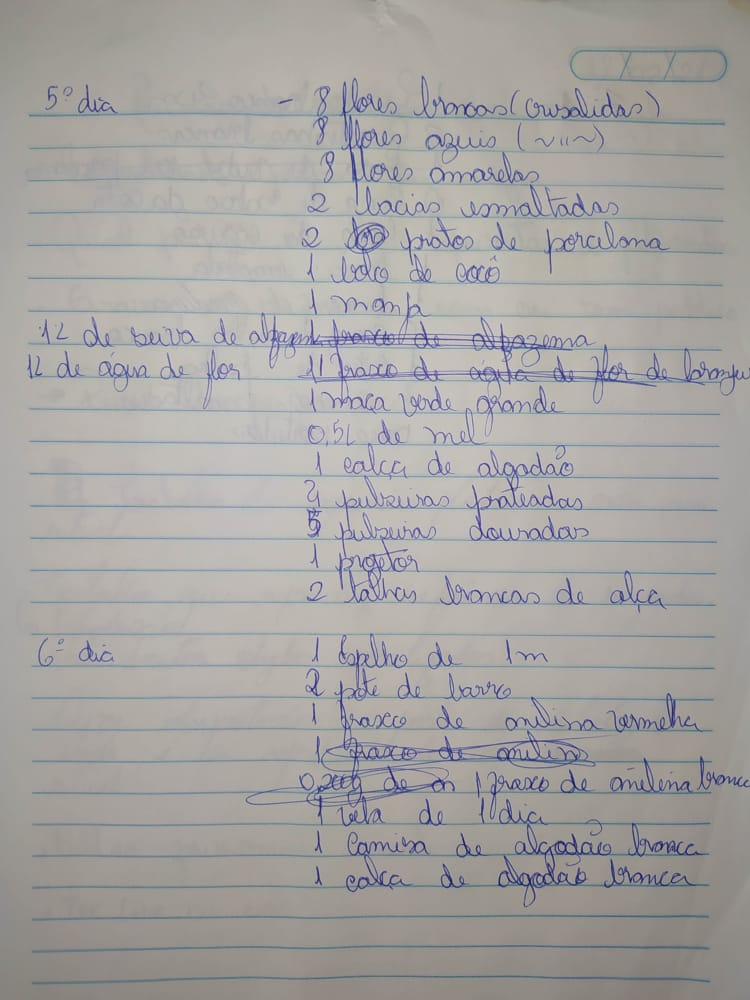 5º dia - 8 flores brancas (crusalidas)
8 flores azuis ( ~ıı~ )
8 flores amarelas
2 bacias esmaltadas
2 pratos de porcelana
1 bolo de cocô
1 manjá
12 de seiva de alfazema 1 fraxco de alfazema
12 de água de flor 11 fraxo de água de flor de laranje
1 maça verde grande
0,5L de mel
1 calça de algodão
4 pulseiras prateadas
5 pulseiras douradas
1 projetor
2 talhas brancas de alça
6º dia 1 Espelho de 1m
2 pote de barro
1 fraxco de anilina vermelha
1 fraxco de anilina
0,200g de an 1 fraxo de anilina branca
1 vela de 1 dia
1 Camisa de algodão branca
1 calça de algodão branca